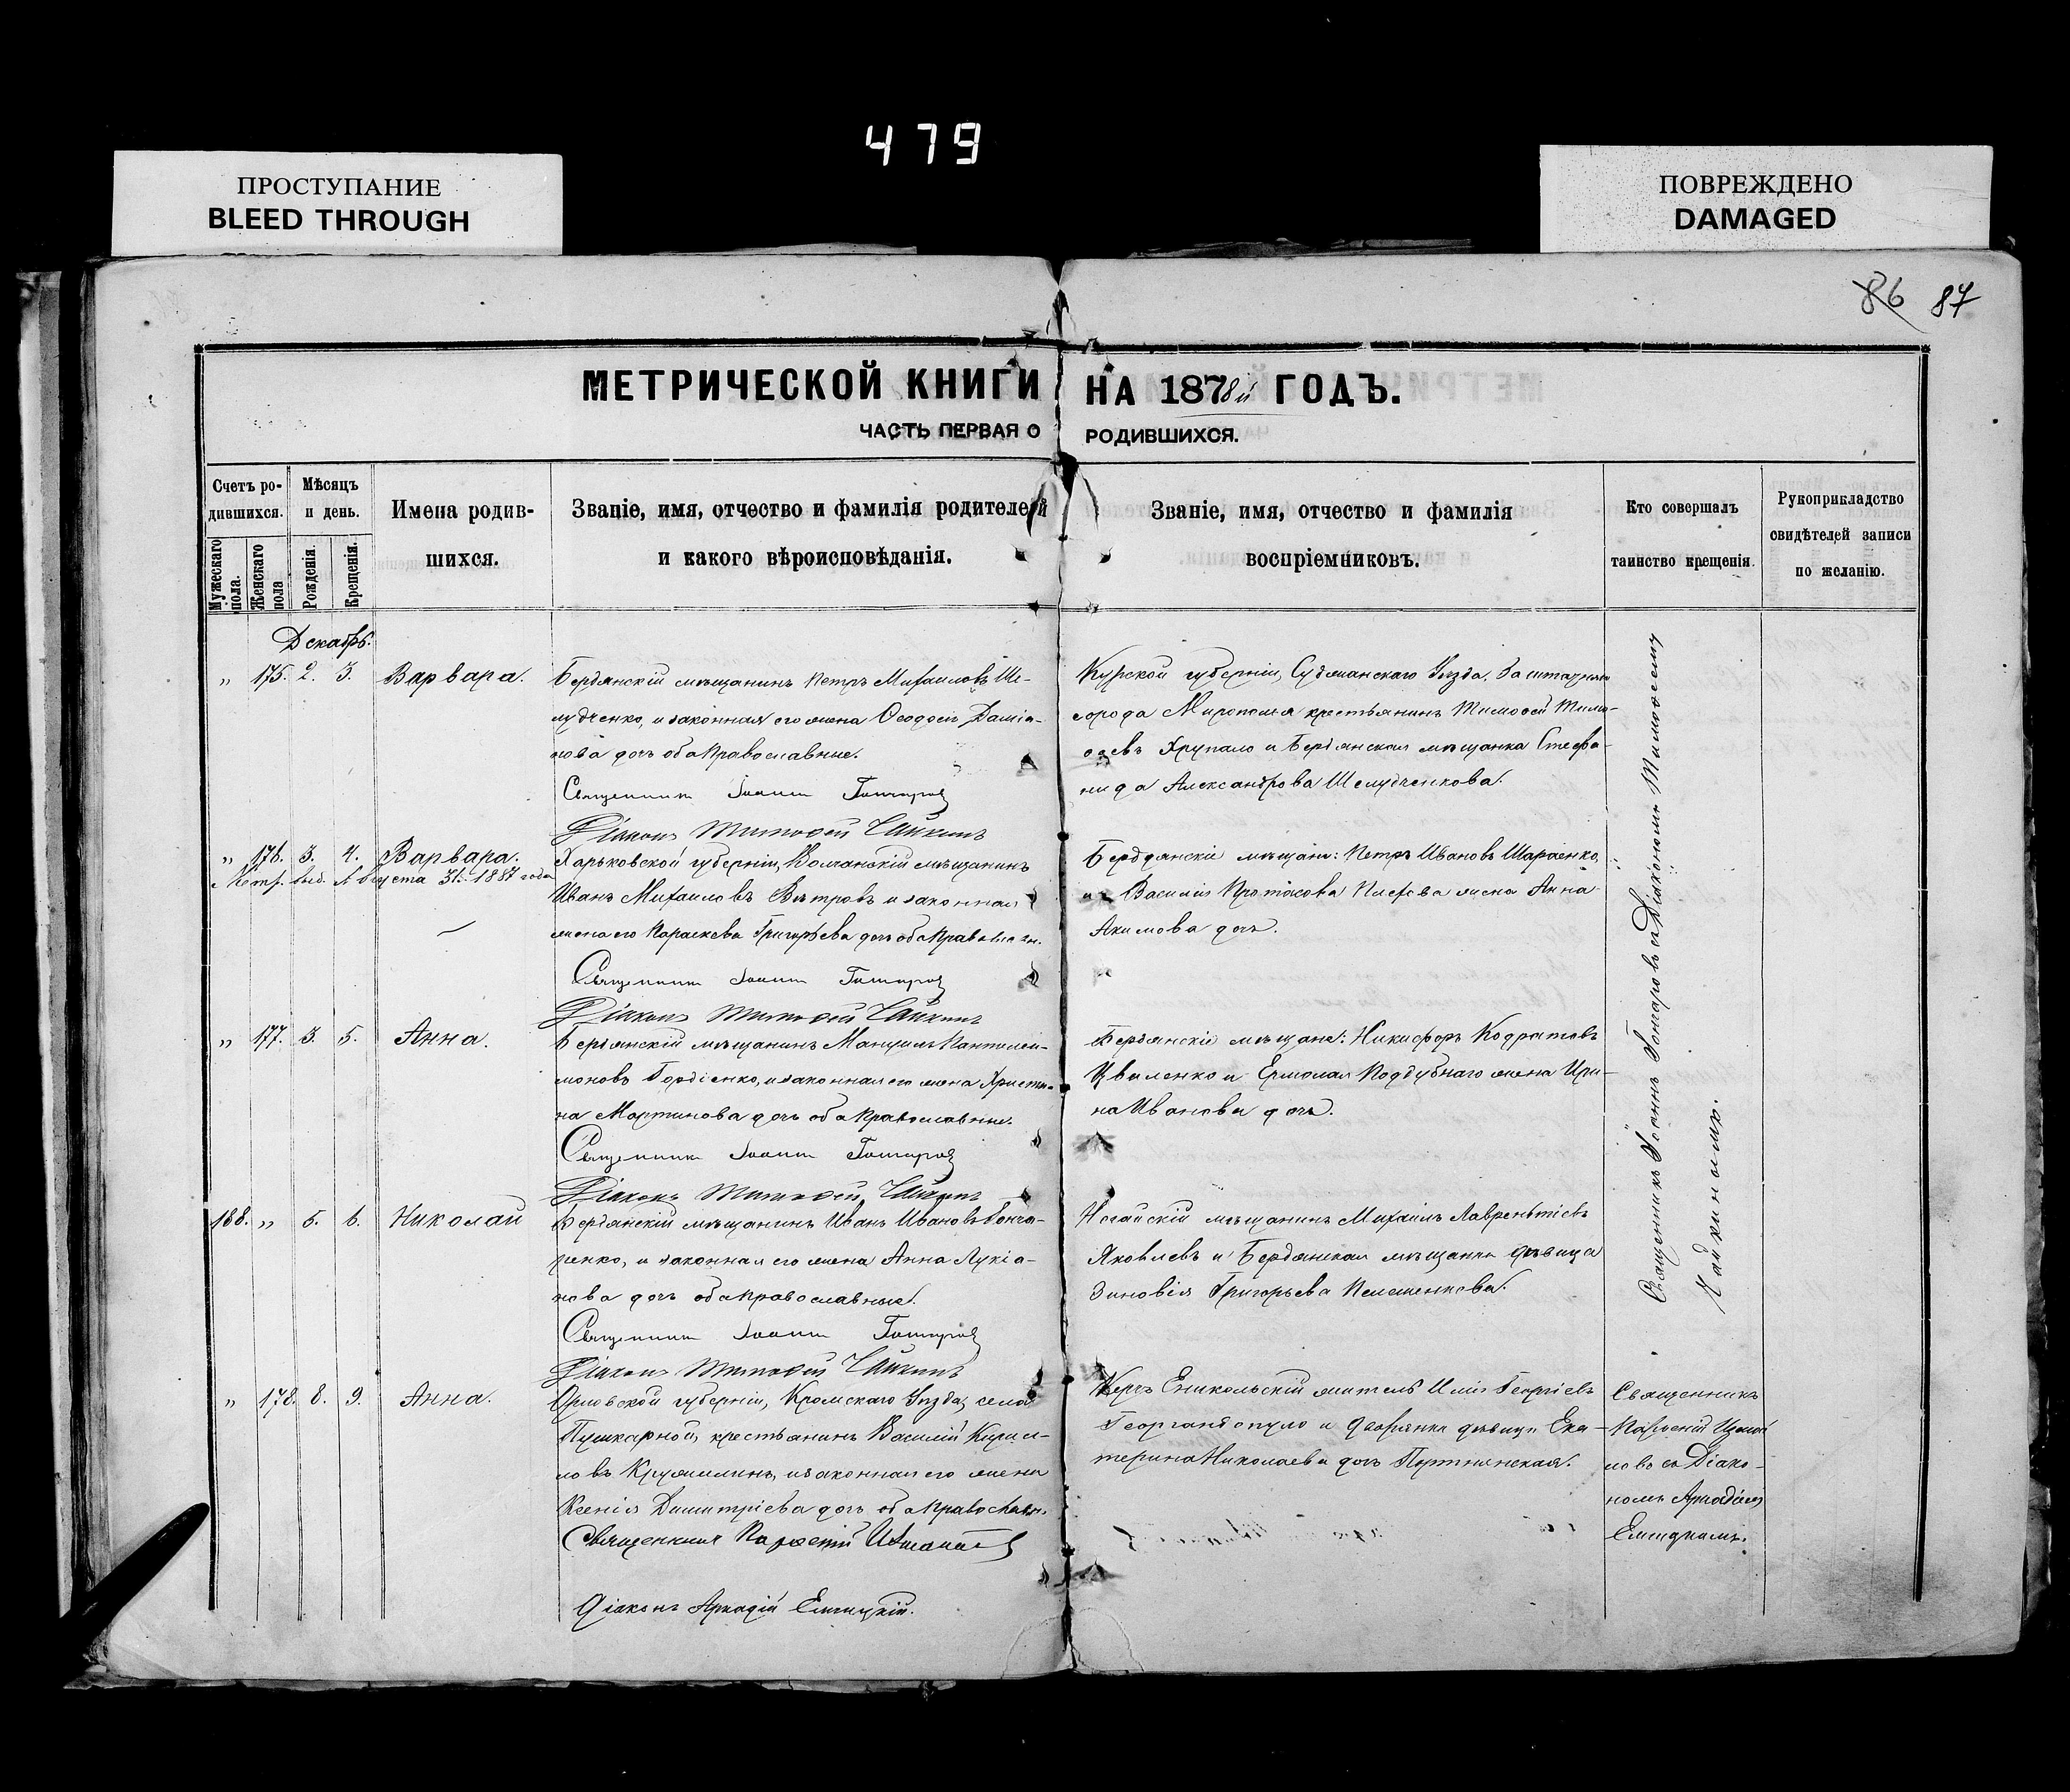 479
ПРОСТУПАНИЕ
BLEED THROUGH
ПОВРЕЖДЕНО
DAMAGED
86 87
МЕТРИЧЕСКОЙ КНИГИ НА 1878й ГОДЪ.
ЧАСТЬ ПЕРВАЯ О РОДИВШИХСЯ.
Счетъ ро-
дившихся.
Мужескаго пола.
Женскаго пола
Мѣсяцъ
и день.
Рожденія.
Крещенія.
Имена родив-
шихся.
Званіе, имя, отчество и фамилія родителей
и какого вѣроисповѣданія.
Званіе, имя, отчество и фамилія
воспріемниковъ.
Кто совершалъ
таинство крещенія.
Рукоприкладство
свидѣтелей записи
по желанію.
Декабрь.
„ 175. 2. 3. Варвара.
Бердянскій мѣщанинъ Петръ Михаиловъ Ше-
лудченко, и законная его жена Ѳеодосія Даміа-
нова дочь оба православные.
Священникъ Іоаннъ Гончаровъ
Діаконъ Тимоѳей Чайкинъ
Курской губерніи, Суджанскаго Уѣзда, Заштатнаго
города Мирополья крестьянинъ Тимоѳей Тимо-
ѳеевъ Хрупало и Бердянская мѣщанка Стефа-
нида Александрова Шелудченкова.
„ 176. 3. 4. Варвара.
Метр. выд. Августа 31. 1887 года
Харьковской губерніи, Волчанскій мѣщанинъ
Иванъ Михаиловъ Вѣтровъ и законная
жена его Параскева Григорьева дочь оба православн.
Священникъ Іоаннъ Гончаровъ
Діаконъ Тимоѳей Чайкинъ
Бердянскіе мѣщане: Петръ Ивановъ
и Василія Протасова жена Анна
Акимова дочь.
„ 177. 3. 5. Анна.
Бердянскій мѣщанинъ Мануилъ Пантелеи-
моновъ Гордіенко, и законная его жена Христи-
на Мартинова дочь оба православные.
Священникъ Іоаннъ Гончаровъ
Діаконъ Тимоѳей Чайкинъ
Бердянскіе мѣщане: Никифоръ Кодратовъ
Цваленко и Ермолая Поддубнаго жена Ири-
на Иванова дочь.
188. „ 5. 6. Николай
Бердянскій мѣщанинъ Иванъ Ивановъ Гонча-
ренко, и законная его жена Анна Лукіа-
нова дочь оба православные.
Священникъ Іоаннъ Гончаровъ
Діаконъ Тимоѳей Чайкинъ
Ногайскій мѣщанинъ Михаилъ Лаврентіевъ
Яковлевъ и Бердянская мѣщанка дѣвица
Зиновія Григорьева
Священникъ Іоаннъ Гончаровъ съ Діакономъ Тимоѳеемъ
Чайкинымъ.
„ 178. 8. 9. Анна.
Орловской губерніи, Кромскаго Уѣзда, села
Пушкарной, крестьянинъ Василій Кирил-
ловъ Кружилинъ, и законная его жена
Ксенія Димитріева дочь оба православн.
Священникъ Парѳеній
Діаконъ Аркадій
Керчь Еникольскій житель Илія Георгіевъ
Георгандопуло и дворянка дѣвица Ека-
терина Николаева дочь
Священникъ
Парѳеній
съ Діако-
номъ Аркадіемъ